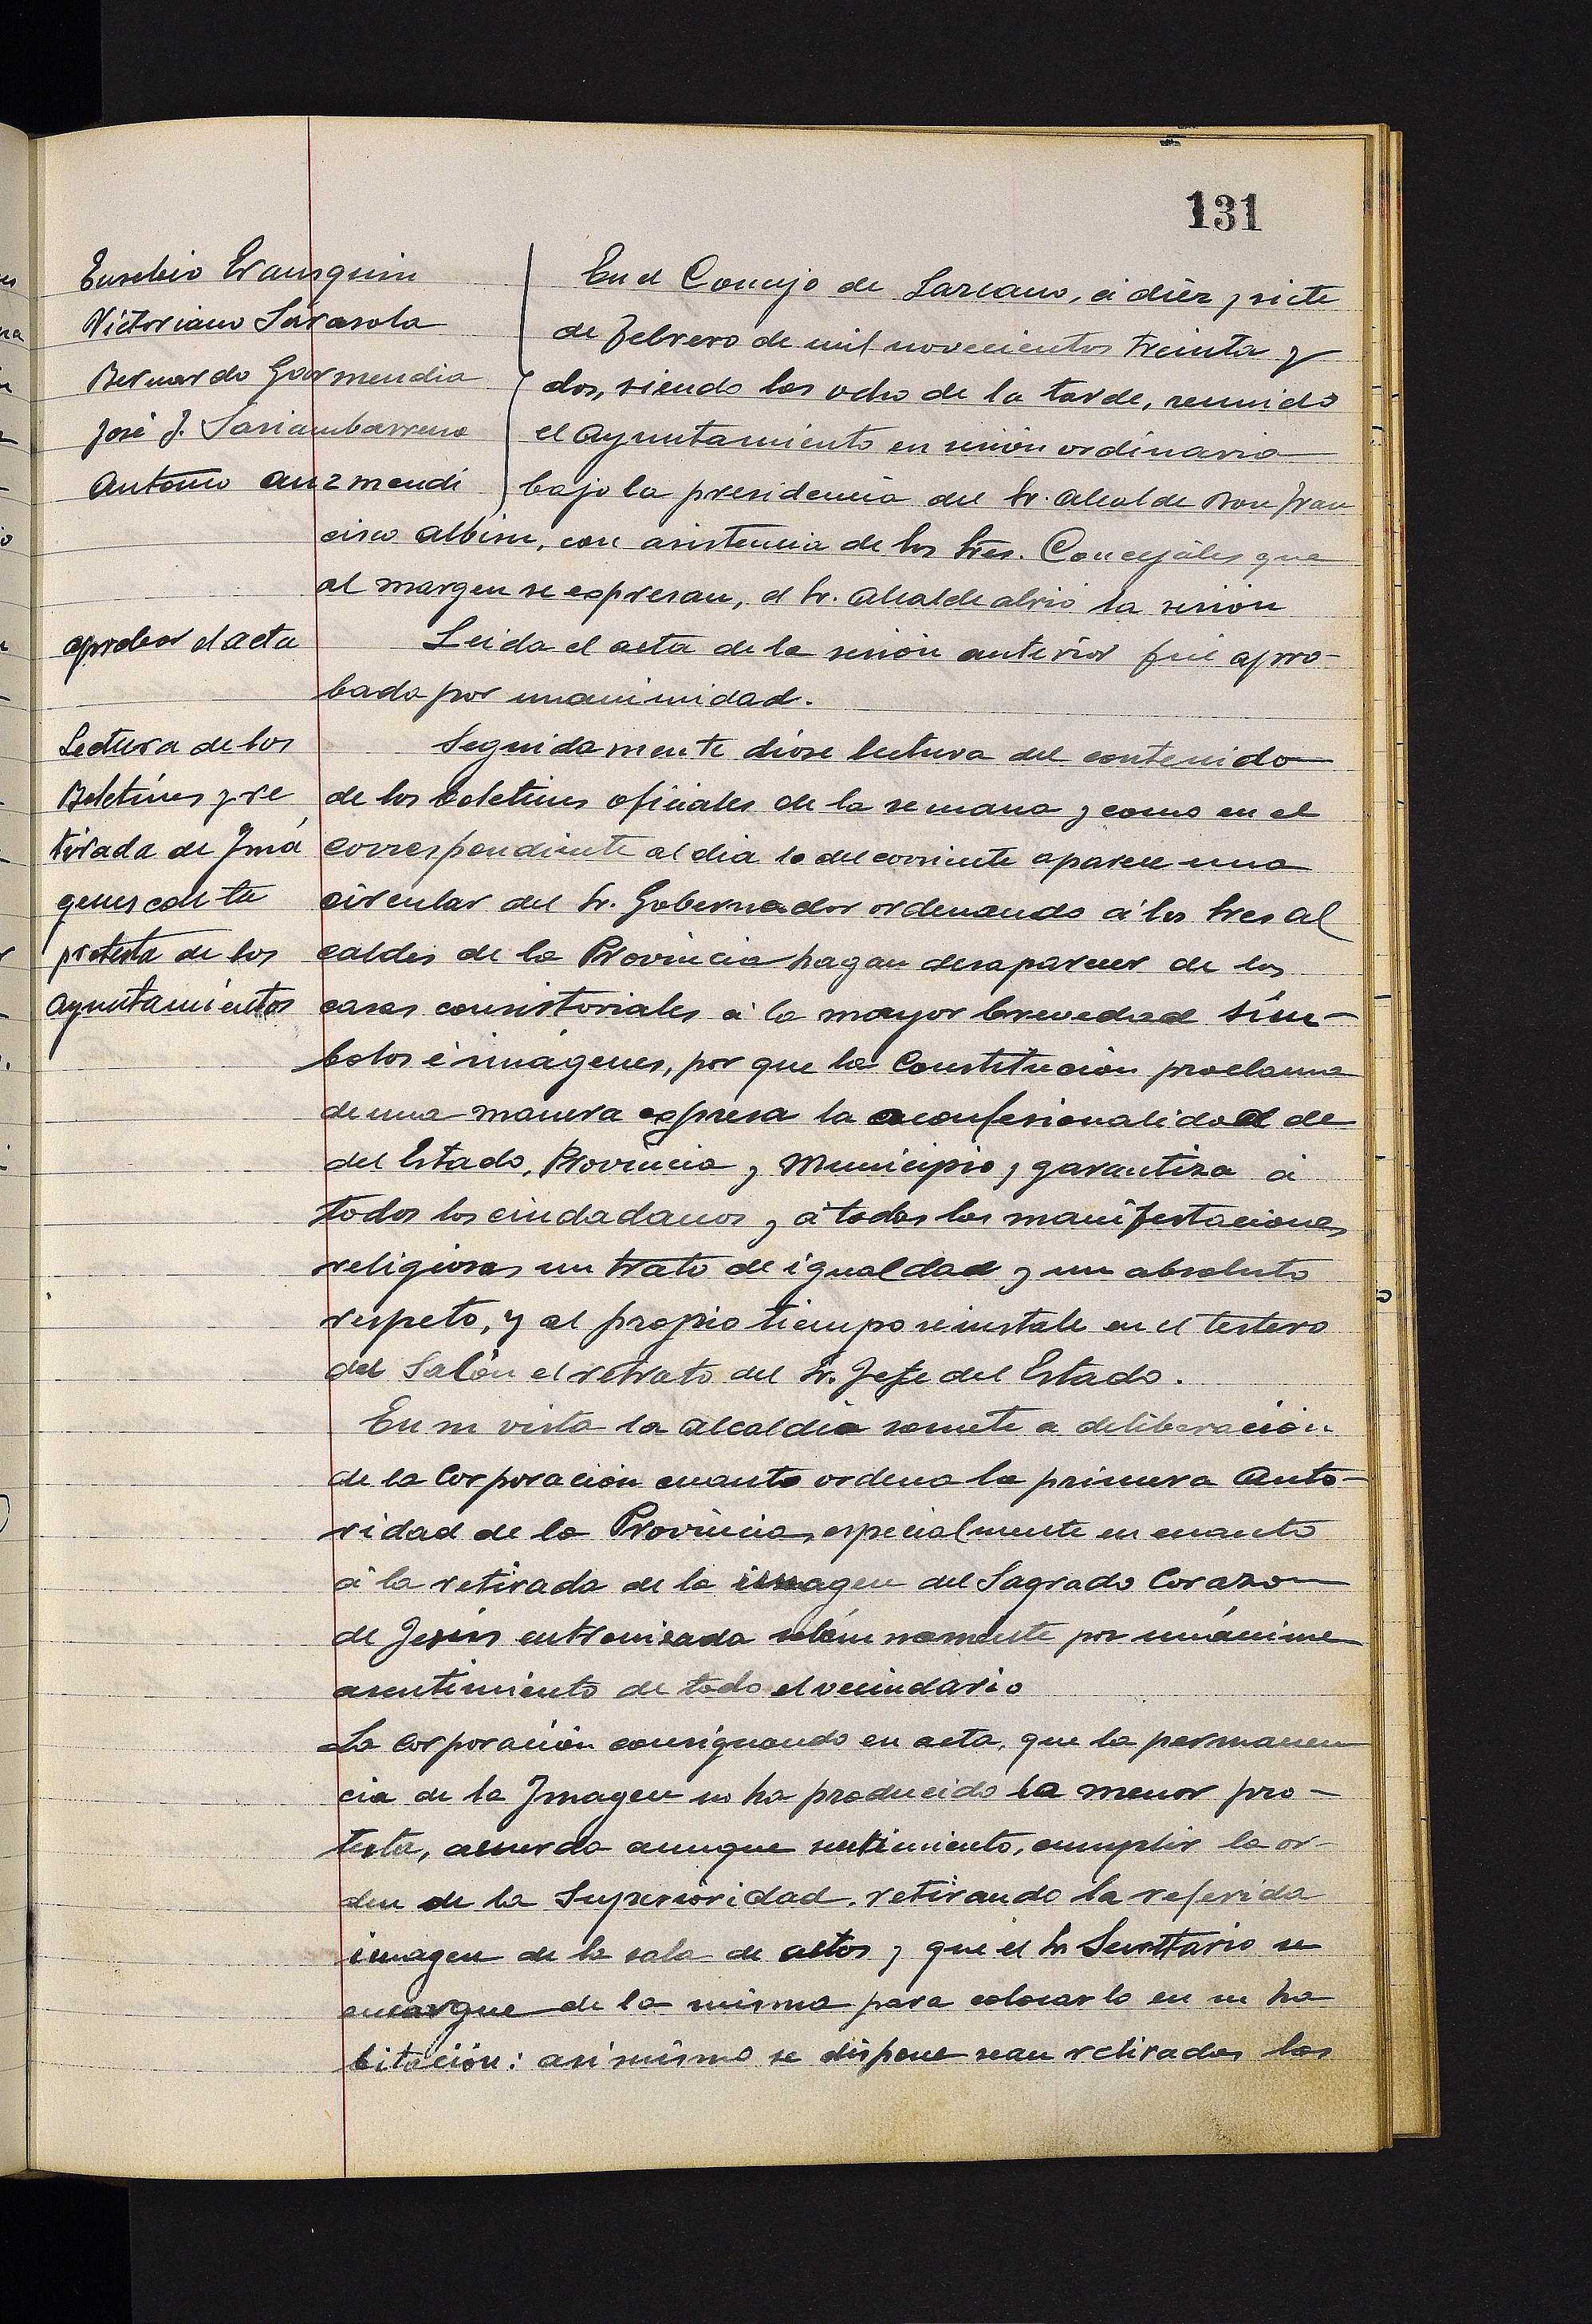 131
Eusebio Eransquin
Victoriano Sarasola
Bernardo Garmendia
José J.
Antonio Auzmendi
En el Concejo de Lazcano, á diez y siete
de Febrero de mil novecientos treinta y
dos, siendo las ocho de la tarde, reunido
el Ayuntamiento en sesión ordinaria
bajo la presidencia del Sr. Alcalde Don Fran
cisco Albisu, con asistencia de los Sres. Concejáles que
al margen se expresan, el Sr. Alcalde abrió la sesión
aprobar el acta
Leida el acta de la sesión anterior fué apro-
bada por unanimidad.
Lectura de los
Boletines y re
tirada de Imá
genes con la
protesta de los
Ayuntamientos
Seguidamente dióse lectura del contenido
de los boletines oficiales de la semana y como en el
correspondiente al dia 10 del corriente aparece una
circular del Sr. Gobernador ordenando á los Sres Al
caldes de la Provincia hagan desaparecer de las
casas consistoriales á la mayor brevedad sím-
bolos é imágenes, por que la Constitución proclama
de una manera expresa la aconfesionalidad de
del Estado, Provincia y Municipio y garantiza á
todos los ciudadanos y á todas las manifestaciones
religiosas un trato de igualdad y un absoluto
respeto, y al propio tiempo se instale en el testero
del Salón el retrato del Sr. Jefe del Estado.
En su vista la Alcaldia somete a deliberación
de la Corporación cuanto ordena la primera Auto-
ridad de la Provincia, especialmente en cuanto
á la retirada de la imagen del Sagrado Corazon
de Jesús entronizada solemnemente por unánime
asentimiento de todo el vecindario
La Corporación consignando en acta, que la permanen
cia de la Imagen no ha producido la menor pro-
testa, acuerda aunque sentimiento, cumplir la or-
den de la Superioridad, retirando la referida
imagen de la sala de actos y que el Sr Secretario se
encargue de la misma para colocarla en su ha
bitación: asi mismo se dispone sean retirados los